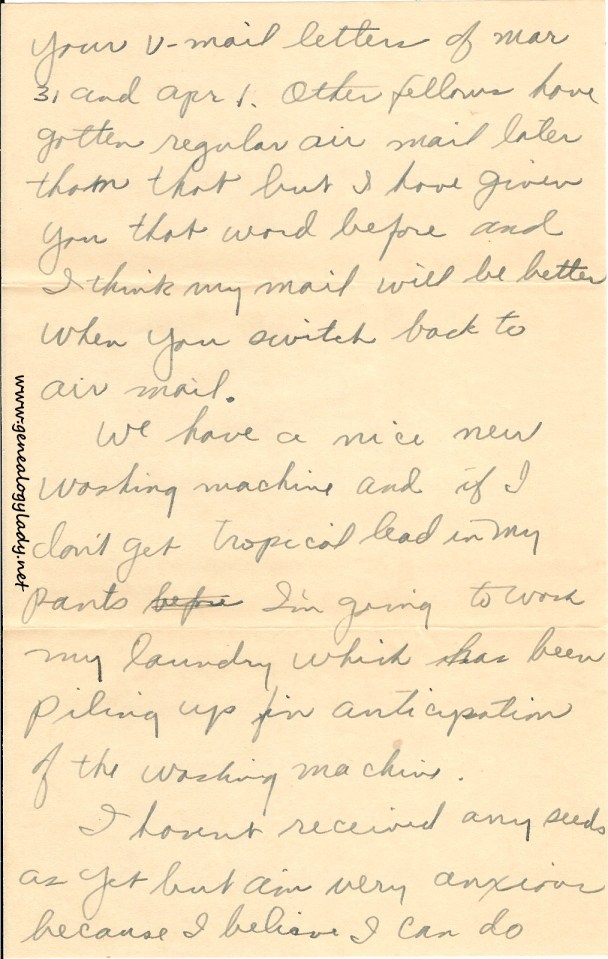 Your V-mail letters of Mar
31 and Apr 1. Other fellows have
gotten regular air mail later
than that but I have given
you that word before and
I think my mail will be better
when you switch back to
air mail.
We have a nice new
washing machine and if I
don't get tropical lead in my
pants before I'm going to wash
my laundry which has been
piling up in anticipation
of the washing machine.
I havent received any seeds
as yet but am very anxious
because I believe I can do
www.genealogylady.net